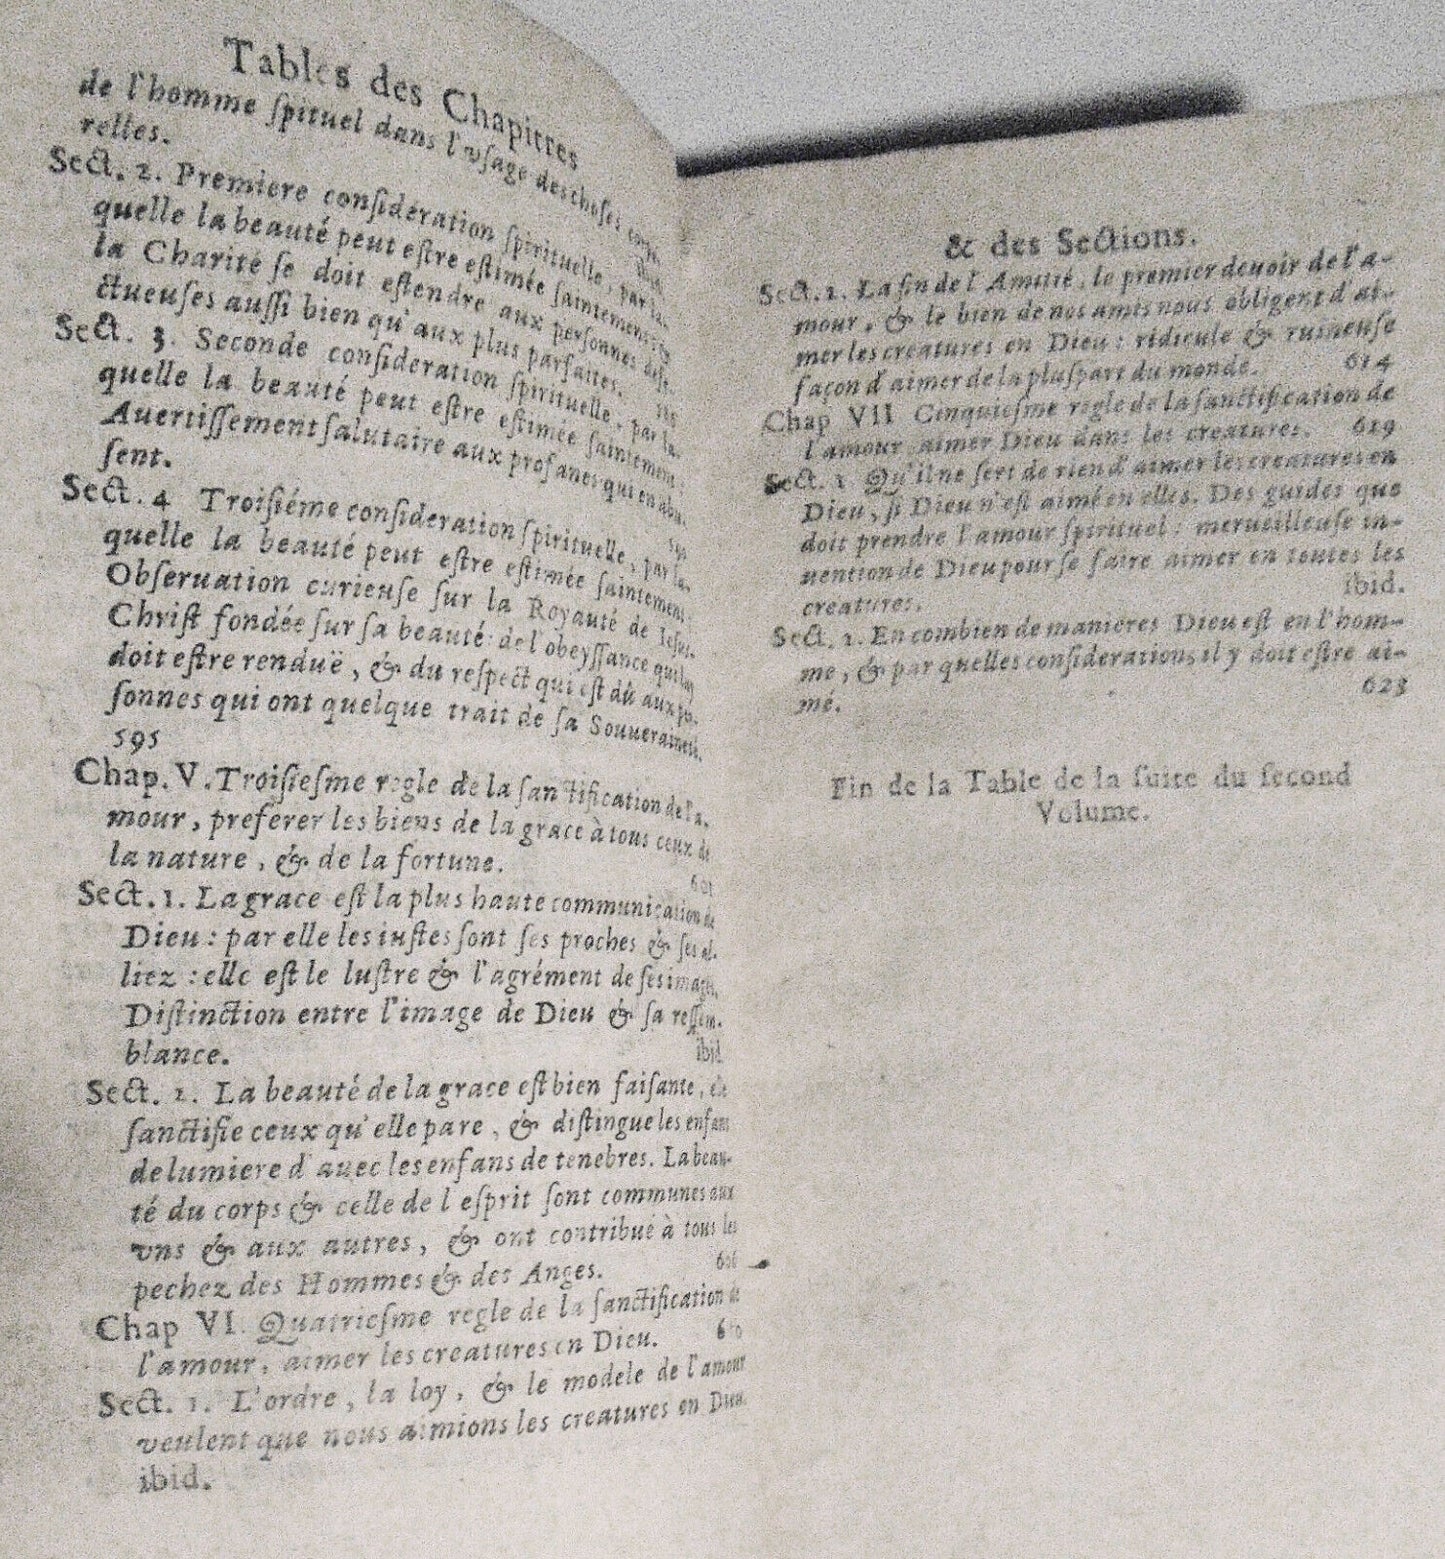 Tables des Chapitres
de l'homme ſpituel dans l'vſage des choſes
relles.
Sect. 2. Premiere conſideration ſpirituelle, par la-
quelle la beauté peut eſtre eſtimée ſaintement:
la Charité ſe doit eſtendre aux perſonnes
ctueuſes auſſi bien qu'aux plus parfaites.
Sect. 3. Seconde conſideration ſpirituelle, par la-
quelle la beauté peut eſtre eſtimée ſaintement:
Auertiſſement ſalutaire aux profanes qui en abu-
ſent.
Sect. 4 Troiſiéme conſideration ſpirituelle, par la-
quelle la beauté peut eſtre eſtimée ſaintement:
Obſeruation curieuſe ſur la Royauté de Ieſus-
Chriſt fondée ſur ſa beauté: de l'obeyſſance qui luy
doit eſtre renduë, & du reſpect qui eſt dû aux per-
ſonnes qui ont quelque trait de ſa Souueraineté.
595
Chap. V. Troiſieſme regle de la ſanctification de l'a-
mour, preferer les biens de la grace à tous ceux de
la nature, & de la fortune. 601
Sect. 1. La grace eſt la plus haute communication de
Dieu: par elle les iuſtes ſont ſes proches & ſes al-
liez: elle eſt le luſtre & l'agrément de ſes images.
Diſtinction entre l'image de Dieu & ſa reſſem-
blance. ibid.
Sect. 2. La beauté de la grace eſt bien faiſante, &
ſanctifie ceux qu'elle pare, & diſtingue les enfans
de lumiere d'auec les enfans de tenebres. La beau-
té du corps & celle de l eſprit ſont communes aux
vns & aux autres, & ont contribué à tous les
pechez des Hommes & des Anges. 606
Chap VI. Quatrieſme regle de la ſanctification de
l'amour, aimer les creatures en Dieu. 610
Sect. 1. L'ordre, la loy, & le modele de l'amour
veulent que nous aimions les creatures en Dieu.
ibid.
& des Sections.
Sect. 2. La fin de l'Amitié, le premier deuoir de l'a-
mour, & le bien de nos amis nous obligent d'ai-
mer les creatures en Dieu: ridicule & ruineuſe
façon d'aimer de la pluſpart du monde. 614
Chap VII Cinquieſme regle de la ſanctification de
l'amour aimer Dieu dans les creatures. 619
Sect. 1 Qu'il ne ſert de rien d'aimer les creatures en
Dieu, ſi Dieu n'eſt aimé en elles. Des guides que
doit prendre l'amour ſpirituel: merueilleuſe in-
uention de Dieu pour ſe faire aimer en toutes les
creatures. ibid.
Sect. 2. En combien de manieres Dieu eſt en l'hom-
me, & par quelles conſiderations il y doit eſtre ai-
mé. 623
Fin de la Table de la ſuite du ſecond
Volume.